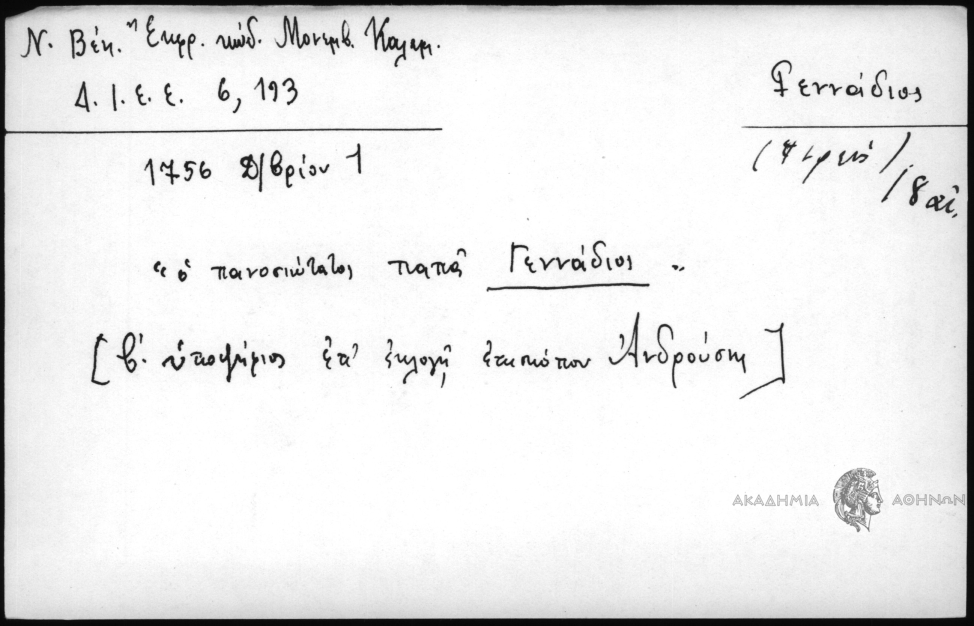 Ν. Βέη. Ἐκφρ. κώδ. Μονεμβ. Καλαμ.
Δ. Ι. Ε. Ε. 6, 193
Γεννάδιος
1756 Δ/βρίου 1
18 αἰ.
"ὁ πανοσιώτατος παπᾶ Γεννάδιος"
[β'. ὑποψήφιος ἐπ' ἐκλογῇ ἐπισκόπου Ἀνδρούσης]
ΑΚΑΔΗΜΙΑ ΑΘΗΝΩΝ